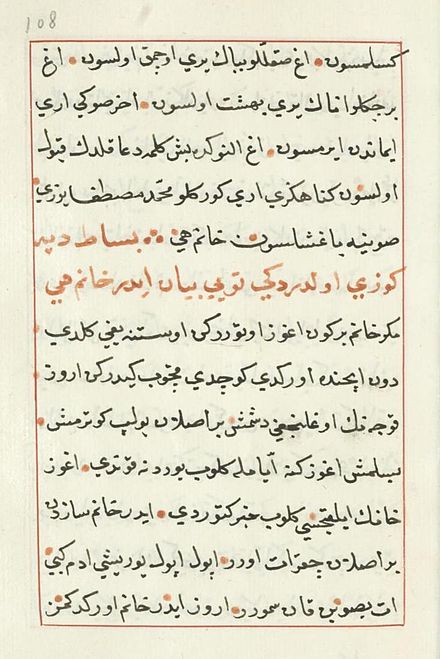 108
كسلمسون اغ صقللو باباك يري اوجمق اولسون اغ
برچكلو اناك يري بهشت اولسون اخر صوكي اري
ايماندن ايرمسون اغ النوكده بش كلمه دعا قلدك قبول
اولسون كناهكزي ادي كوركلو محمد مصطفا يوزي
صوينه باغشلسون خانم هي بساط دپه
كوزي اولدردكي بويي بيان ايدر خانم هي
مكر خانم بر كون اغوز اوتوررکن اوستنه يغي كلدي
دون ايچنده اوركدي كوچدي قچوب كيدركن اروز
قوجه نك اوغلنجغي دشمش بر اصلان بولپ كوترمش
بسلمش اغوز كنه ايامله كلوب يوردنه قوندي اغوز
خانك ايلقيجيسي كلوب خبر كتوردي ايدر خانم سازدن
بر اصلان چقر ات اورر اپول اپول يوريشي ادم كبي
ات بصوبن قان سمورر اروز ايدر خانم اوركدكمز